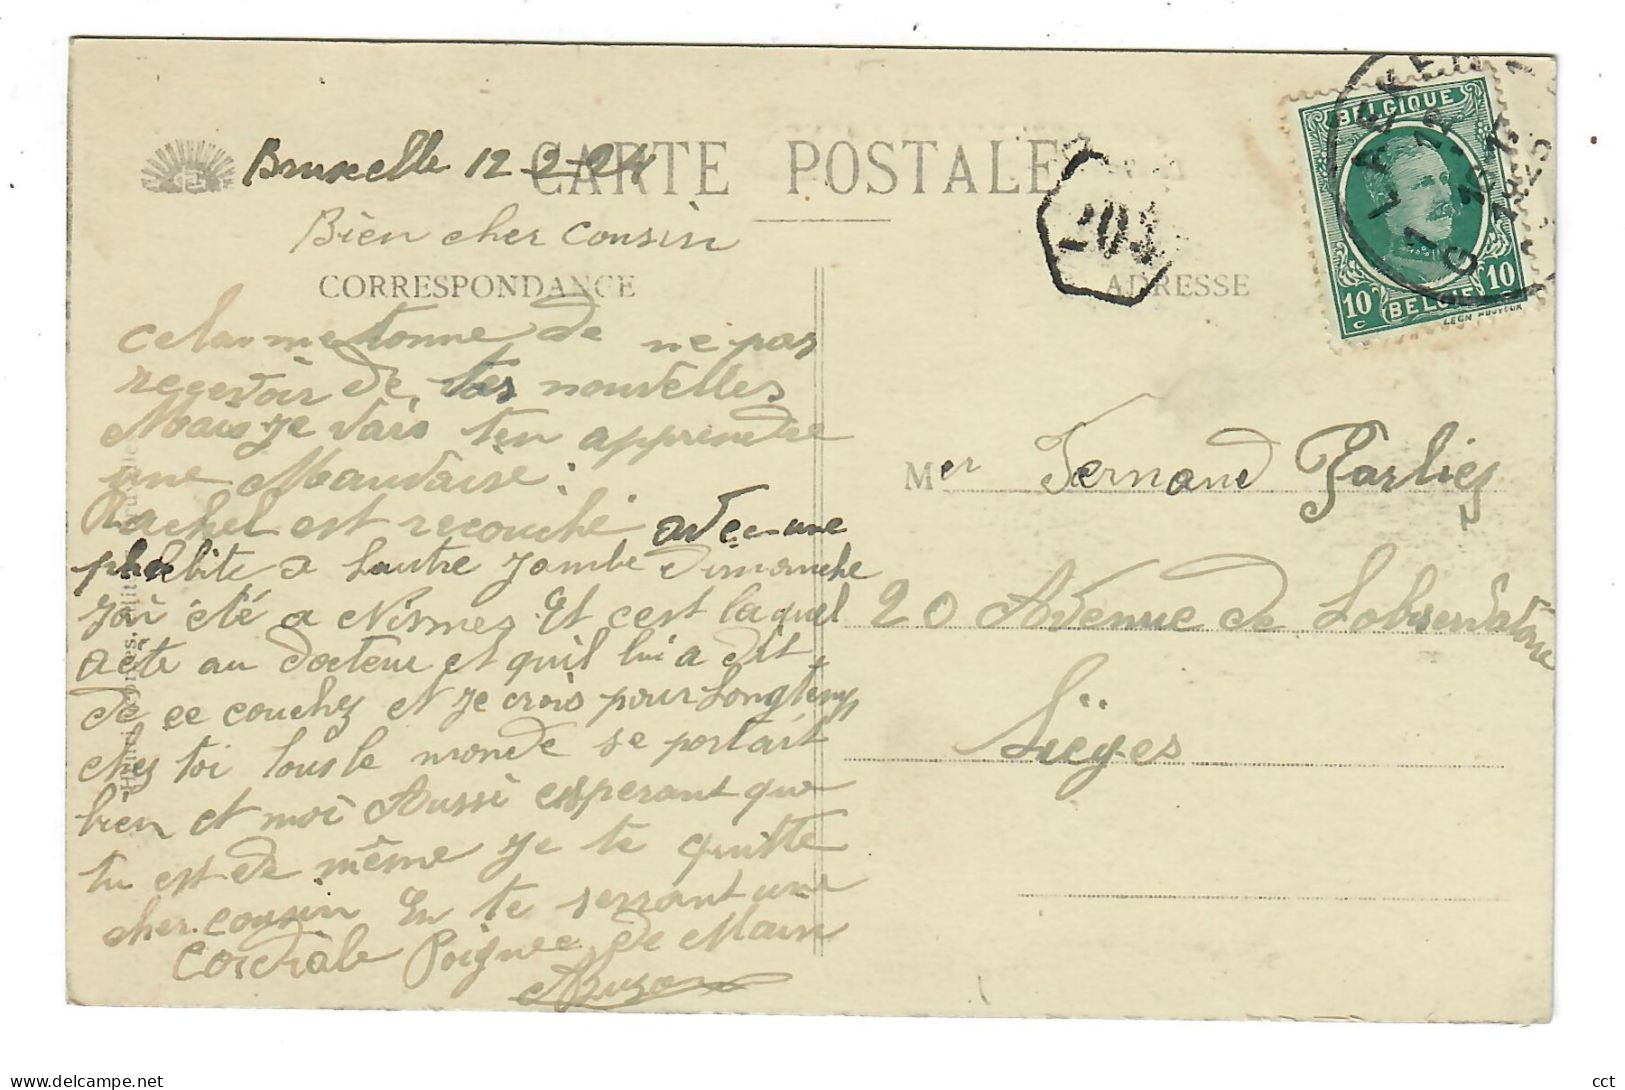 CARTE POSTALE
Bruxelle 12-2-24
Bien cher Cousin
CORRESPONDANCE
ADRESSE
204
LAEKEN
BELGIQUE
10c BELGIE 10
cela metonne de ne pas
recevoir de tes nouvelles
Mais Je Vais t'en apprendre
une Mauvaise :
Rachel est recouché avec une
phlebite a Lautre Jambe Dimanche
J'ai été a Nismes Et c'est la quel
acte au docteur et quil lui a dit
de ce couchez et Je crois pour Longtemp
chez toi tous le monde se portait
bien et moi Aussi esperant que
tu est de même Je te quitte
cher cousin En te serrant une
Cordiale Poignee de Main
Mer Fernand Parliez
20 Avenue de Lobservatoire
Lièges
cct